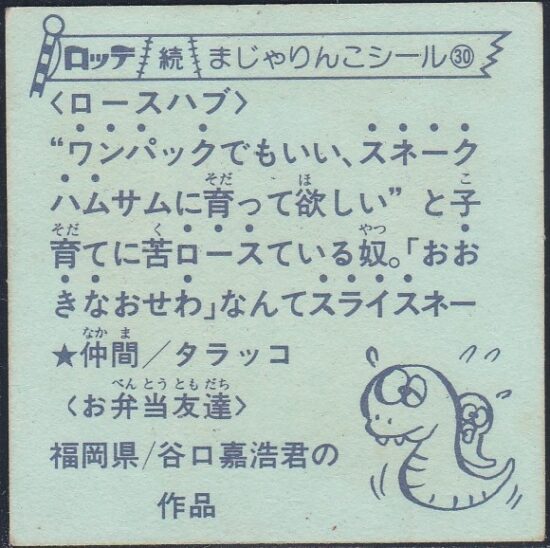 ロッテ 続 まじゃりんこシール㉚
〈ロースハブ〉
“ワンパックでもいい、スネーク
ハムサムに育って欲しい”と子
育てに苦ロースている奴。「おお
きなおせわ」なんてスライスネー
★仲間/タラッコ
〈お弁当友達〉
福岡県/谷口嘉浩君の
作品